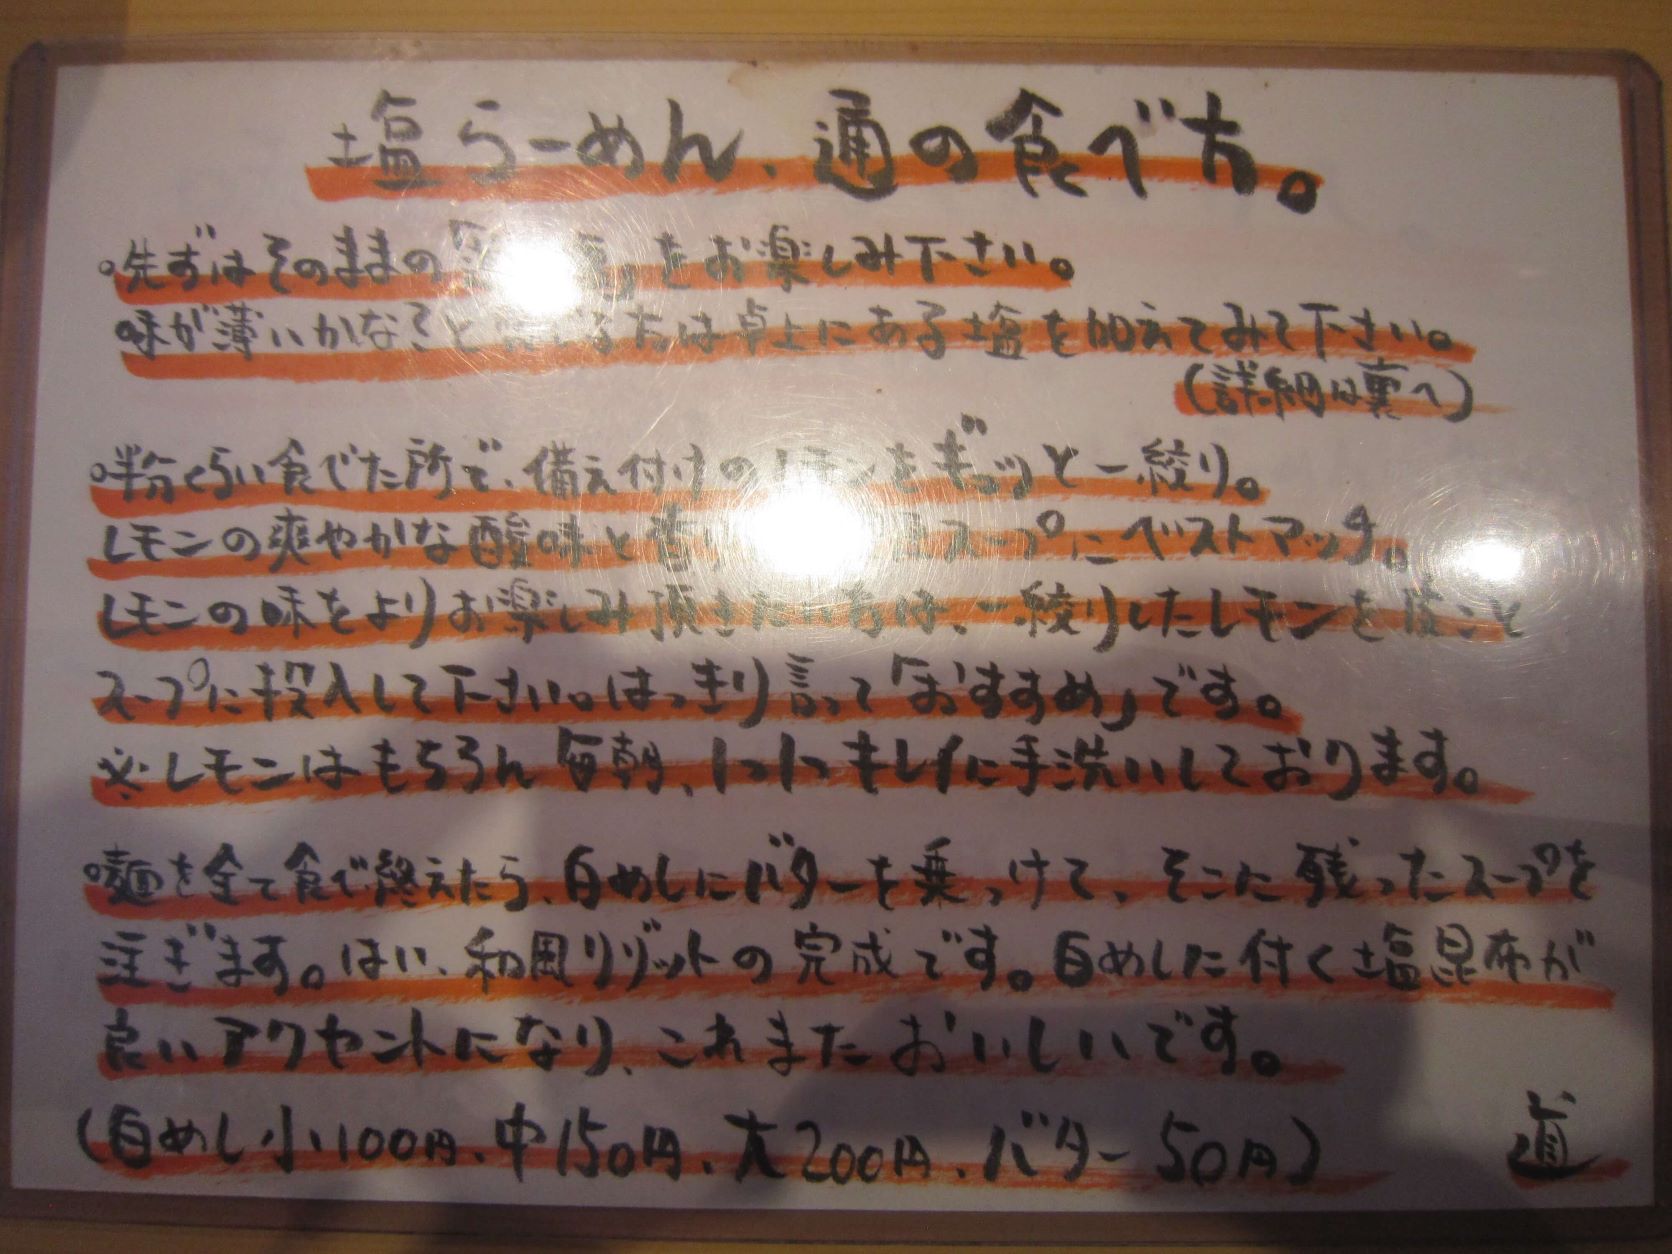 塩らーめん、通の食べ方。
。先ずはそのままの「」をお楽しみ下さい。
味が薄いかな?と感じる方は卓上にある塩を加えてみて下さい。
(詳細は裏へ)
。半分くらい食べた所で、備え付けのレモンをギュッと一絞り。
レモンの爽やかな酸味と香りスープにベストマッチ。
レモンの味をよりお楽しみ頂きたい方は、一絞りしたレモンを皮ごと
スープに投入して下さい。はっきり言って「おすすめ」です。
※レモンはもちろん毎朝、1つ1つキレイに手洗いしております。
。麺を全て食べ終えたら、白めしにバターを乗っけて、そこに残ったスープを
注ぎます。はい、和風リゾットの完成です。白めしに付く塩昆布が
良いアクセントになり、これまたおいしいです。
(白めし小100円、中150円、大200円、バター50円) 道